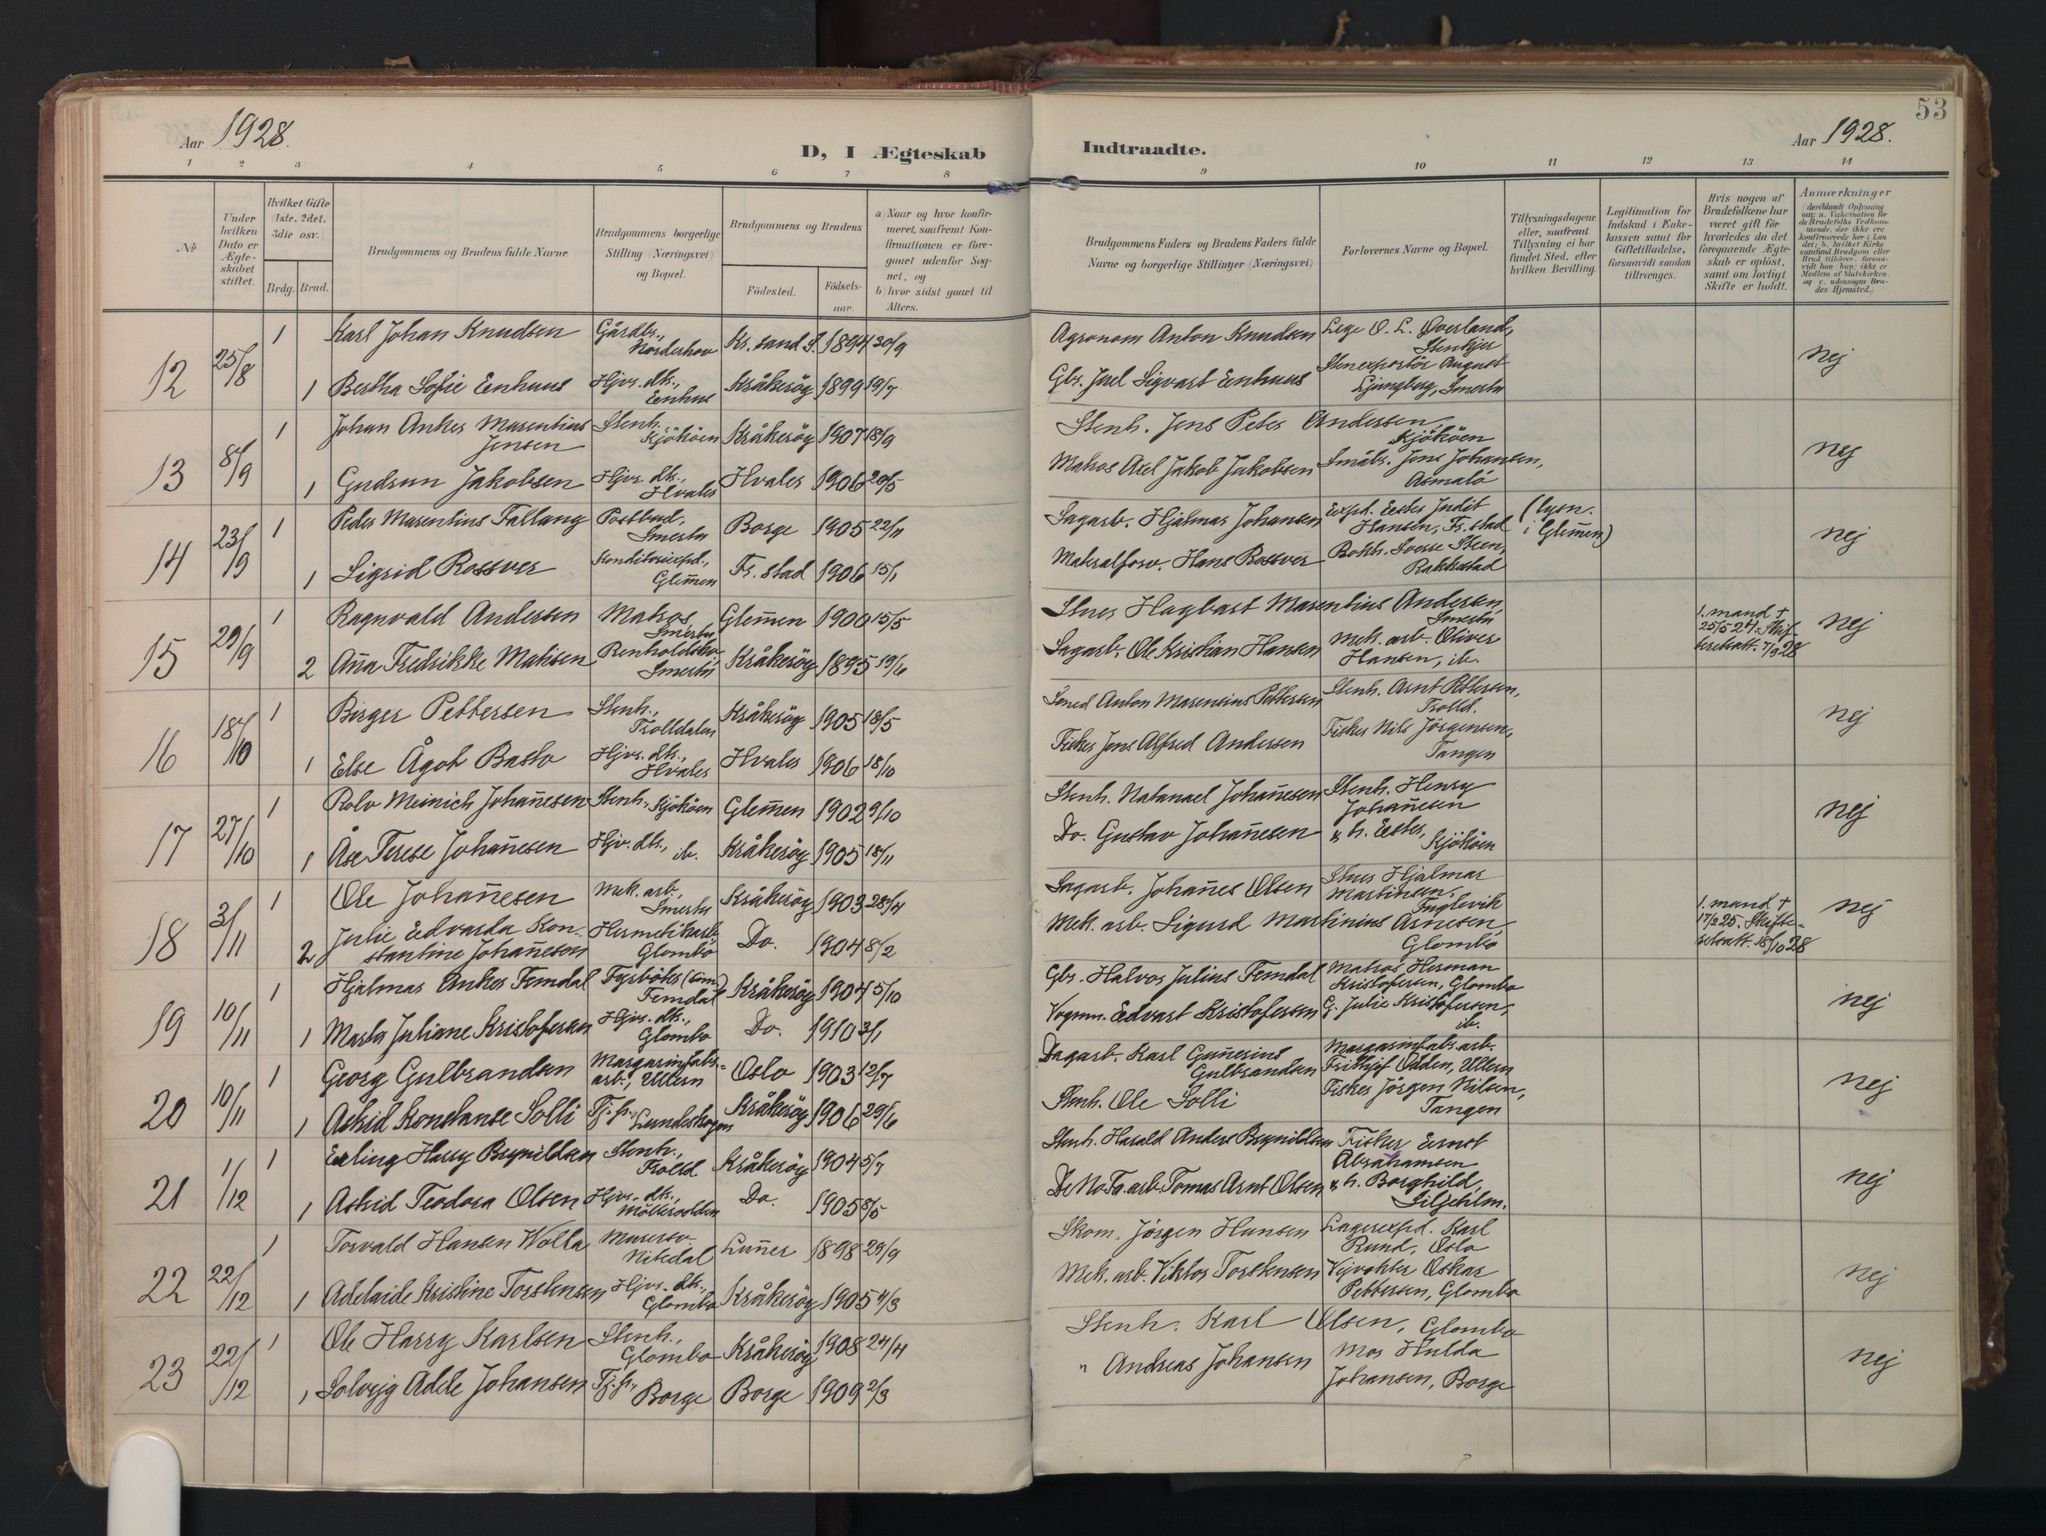 53
Aar 1928.
D, I Ægteskab
Indtraadte.
Aar 1928.
1 2 3 4 5 6 7 8 9 10 11 12 13 14
No
Under hvilken Dato er Ægteskabet stiftet.
Hvilket Gifte (1ste, 2det, 3die osv.)
Brdg. Brud.
Brudgommens og Brudens fulde Navne
Brudgommens borgerlige Stilling (Næringsvei) og Bopæl.
Brudgommens og Brudens
Födested.
Födselsaar.
a) Naar og hvor konfirmeret, saafremt Konfirmationen er foregaaet udenfor Sognet, og
b) hvor sidst gaaet til Alters.
Brudgommens Faders og Brudens Faders fulde Navne og borgerlige Stillinger (Næringsvei)
Forlovernes Navne og Bopæl.
Tillysningsdagene eller, saafremt Tillysning ei har fundet Sted, efter hvilken Bevilling.
Legitimation for Indskud i Enkekassen samt for Giftetilladelse, forsaavidt saadan tiltrænges.
Hvis nogen af Brudefolkene har været gift för hvorledes da det foregaaende Ægteskab er oplöst, samt om lovligt Skifte er holdt.
Anmærkninger
12 25/8 1 Karl Johan Knudsen Gårdbr., Norderhov Kr.sand S. 1894 30/9 Agronom Anton Knudsen Lege O. L. Øverland, Stenkjer nej
1 Bertha Sofie Enhuus Hjvs. dtr., Enhus Kråkerøy 1899 19/7 Gbr. Juel Sigvart Enhuus Stenexportör August Ljungberg, Smertu
13 8/9 1 Johan Anker Marentius Jensen Stenh. Kjököen Kråkerøy 1907 18/9 Stenh. Jens Peter Andersen, Kjököen nej
1 Gudrun Jakobsen Hjvs. dtr., Hvaler Hvaler 1906 20/5 Matros Axel Jakob Jakobsen Småbr. Jens Johansen, Asmalö
14 23/9 1 Peder Marentius Tallang Postbud, Smertu Borge 1905 22/11 Sagarb. Hjalmar Johansen Exped. Ester Judit Hansen, Fr.stad (lysn. i Glem̄en) nej
1 Sigrid Rossver Konditoriexpd., Glem̄en Fr.stad 1906 15/1 Materalforv. Hans Rossver Bokh. Sverre Steen, Rakkestad
15 29/9 1 Ragnvald Andersen Matros, Smertu Glem̄en 1900 15/5 Stuer Hagbart Marentius Andersen, Smertu nej
2 An̄a Fredrikke Matisen Renholdsko., Smertu Kråkerøy 1895 19/6 Sagarb. Ole Kristian Hansen Mek. arb. Oliver Hansen, ib. 1. mand † 25/5 24. Skifteretsatt. 7/9 28
16 18/10 1 Birger Pettersen Stenh., Trolldalen Kråkerøy 1905 18/5 Smed Anton Marentius Pettersen Stenh. Arnt Pettersen, Trolld. nej
1 Else Ågot Basto Hjvs. dtr., Hvaler Hvaler 1906 18/10 Fisker Jens Alfred Andersen Fisker Nils Jörgensen, Tangen
17 27/10 1 Rolv Meinich Johan̄esen Stenh., Kjököen Glem̄en 1902 9/10 Stenh. Natanael Johan̄esen Stenh. Henry Johan̄esen nej
1 Åse Terese Johan̄esen Hjv. dtr., ib. Kråkerøy 1905 18/11 Do. Gustav Johan̄esen & h. Ester, Kjököen
18 3/11 1 Ole Johan̄esen Mek. arb., Smertu Kråkerøy 1903 28/4 Sagarb. Johan̄es Olsen Stuer Hjalmar Martinsen, Fuglevik nej
2 Julie Edvarda Konstantine Johan̄esen Hermetikarb. Glombö Do. 1904 8/2 Mek. arb. Sigurd Martinius Arnesen, Glombö 1. mand † 17/2 25. Skifteretsatt. 18/10 28
19 10/11 1 Hjalmar Anker Femdal Fyrböter Femdal Kråkerøy 1904 5/10 Gbr. Halvor Julius Femdal Matros Herman Kristofersen, Glombo nej
1 Marta Juliane Kristofersen Hjvs. dtr., Glombo Do. 1910 3/1 Vognm. Edvart Kristofersen G. Julie Kristofersen, ib.
20 10/11 1 Georg Gulbrandsen Margarinfabr. arb., Ullern Oslo 1903 12/7 Dagarb. Karl Gun̄erius Gulbrandsen Margarinfabr. arb. Frithjof Odden, Ullern nej
1 Astrid Konstanse Solli Tj. p., Lundeskogen Kråkerøy 1906 29/6 Stenh. Ole Solli Fisker Jörgen Nilsen, Tangen
21 1/12 1 Erling Harry Brynildsen Stenh., Trolld. Kråkerøy 1904 5/7 Stenh. Harald Anders Brynildsen Fisker Ernst Abrahamsen nej
1 Astrid Teodora Olsen Hjvs. dtr., Möllerodden Do. 1905 8/5 De No Fa. arb. Tomas Arnt Olsen & h. Borghild, Liljeholm.
22 22/12 1 Torvald Hansen Wolla Murersv. Nitedal Lun̄er 1898 29/9 Skom. Jörgen Hansen Lagerexpd. Karl Rund, Oslo nej
1 Adelaide Kristine Torstensen Hjvs. dtr., Glombo Kråkerøy 1905 4/3 Mek. arb. Viktor Torstensen Veivokter Oskar Pettersen, Glombo
23 22/12 1 Ole Harry Karlsen Stenh., Glombo Kråkerøy 1908 24/4 Stenh. Karl Olsen, Glombo nej
1 Solveig Adele Johansen Tj. p., Borge Borge 1909 2/3 " Andreas Johansen Mor Hulda Johansen, Borge